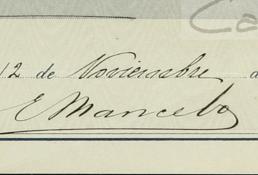 Ca
12 de Noviembre d
E Mancebo